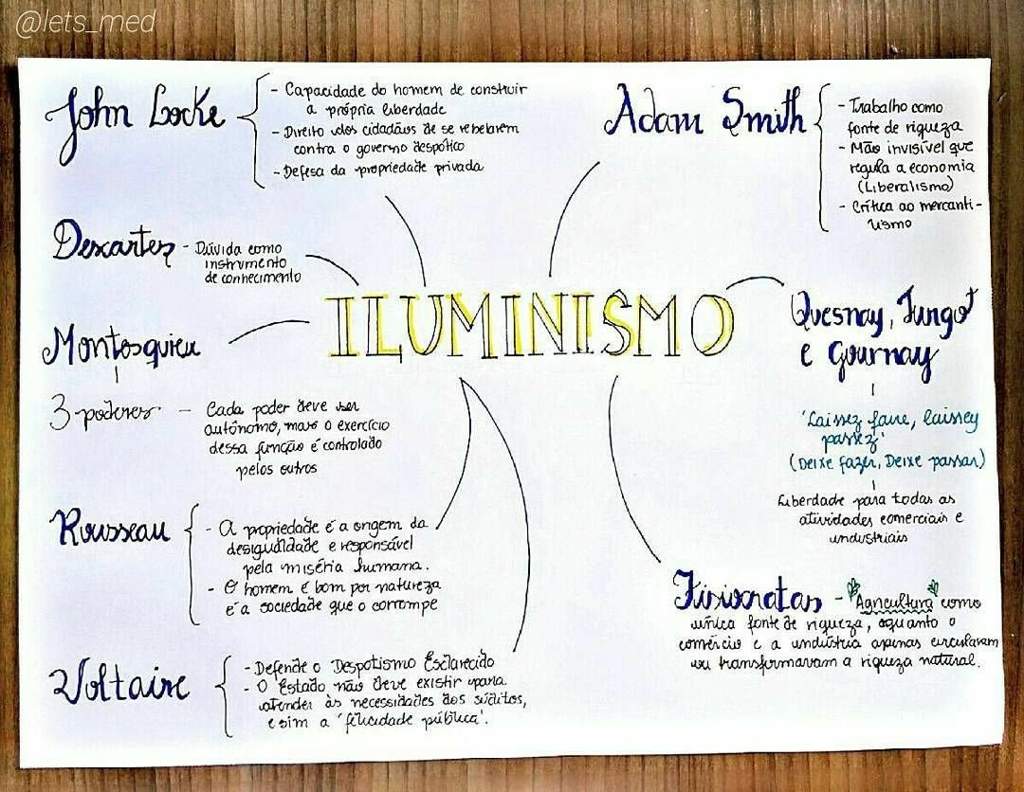 @lets_med
John Locke
- Capacidade do homem de construir
a própria liberdade
- Direito dos cidadãos de se rebelarem
contra o governo despótico
- Defesa da propriedade privada
Adam Smith
- Trabalho como
fonte de riqueza
- Mão invisível que
regula a economia
(Liberalismo)
- Crítica ao mercanti-
lismo
Descartes - Dúvida como
instrumento
de conhecimento
ILUMINISMO
Montesquieu
3 poderes - Cada poder deve ser
autônomo, mas o exercício
dessa função é controlado
pelos outros
Quesnay, Turgot
e Gournay
'Laissez faire, laissez
passez'
(Deixe fazer, Deixe passar)
Liberdade para todas as
atividades comerciais e
industriais
Rousseau
- A propriedade é a origem da
desigualdade e responsável
pela miséria humana.
- O homem é bom por natureza
e a sociedade que o corrompe
Fisiocratas - Agricultura como
única fonte de riqueza, enquanto o
comércio e a indústria apenas circulavam
ou transformavam a riqueza natural.
Voltaire
- Defende o Despotismo Esclarecido
- O Estado não deve existir para
atender às necessidades dos súditos,
e sim a 'felicidade pública'.